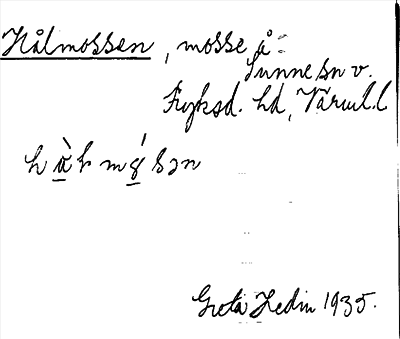 Hålmossen, mosse å
Sunne sn v.
Fryksd. hd, Värml. l
Greta Hedin 1935.